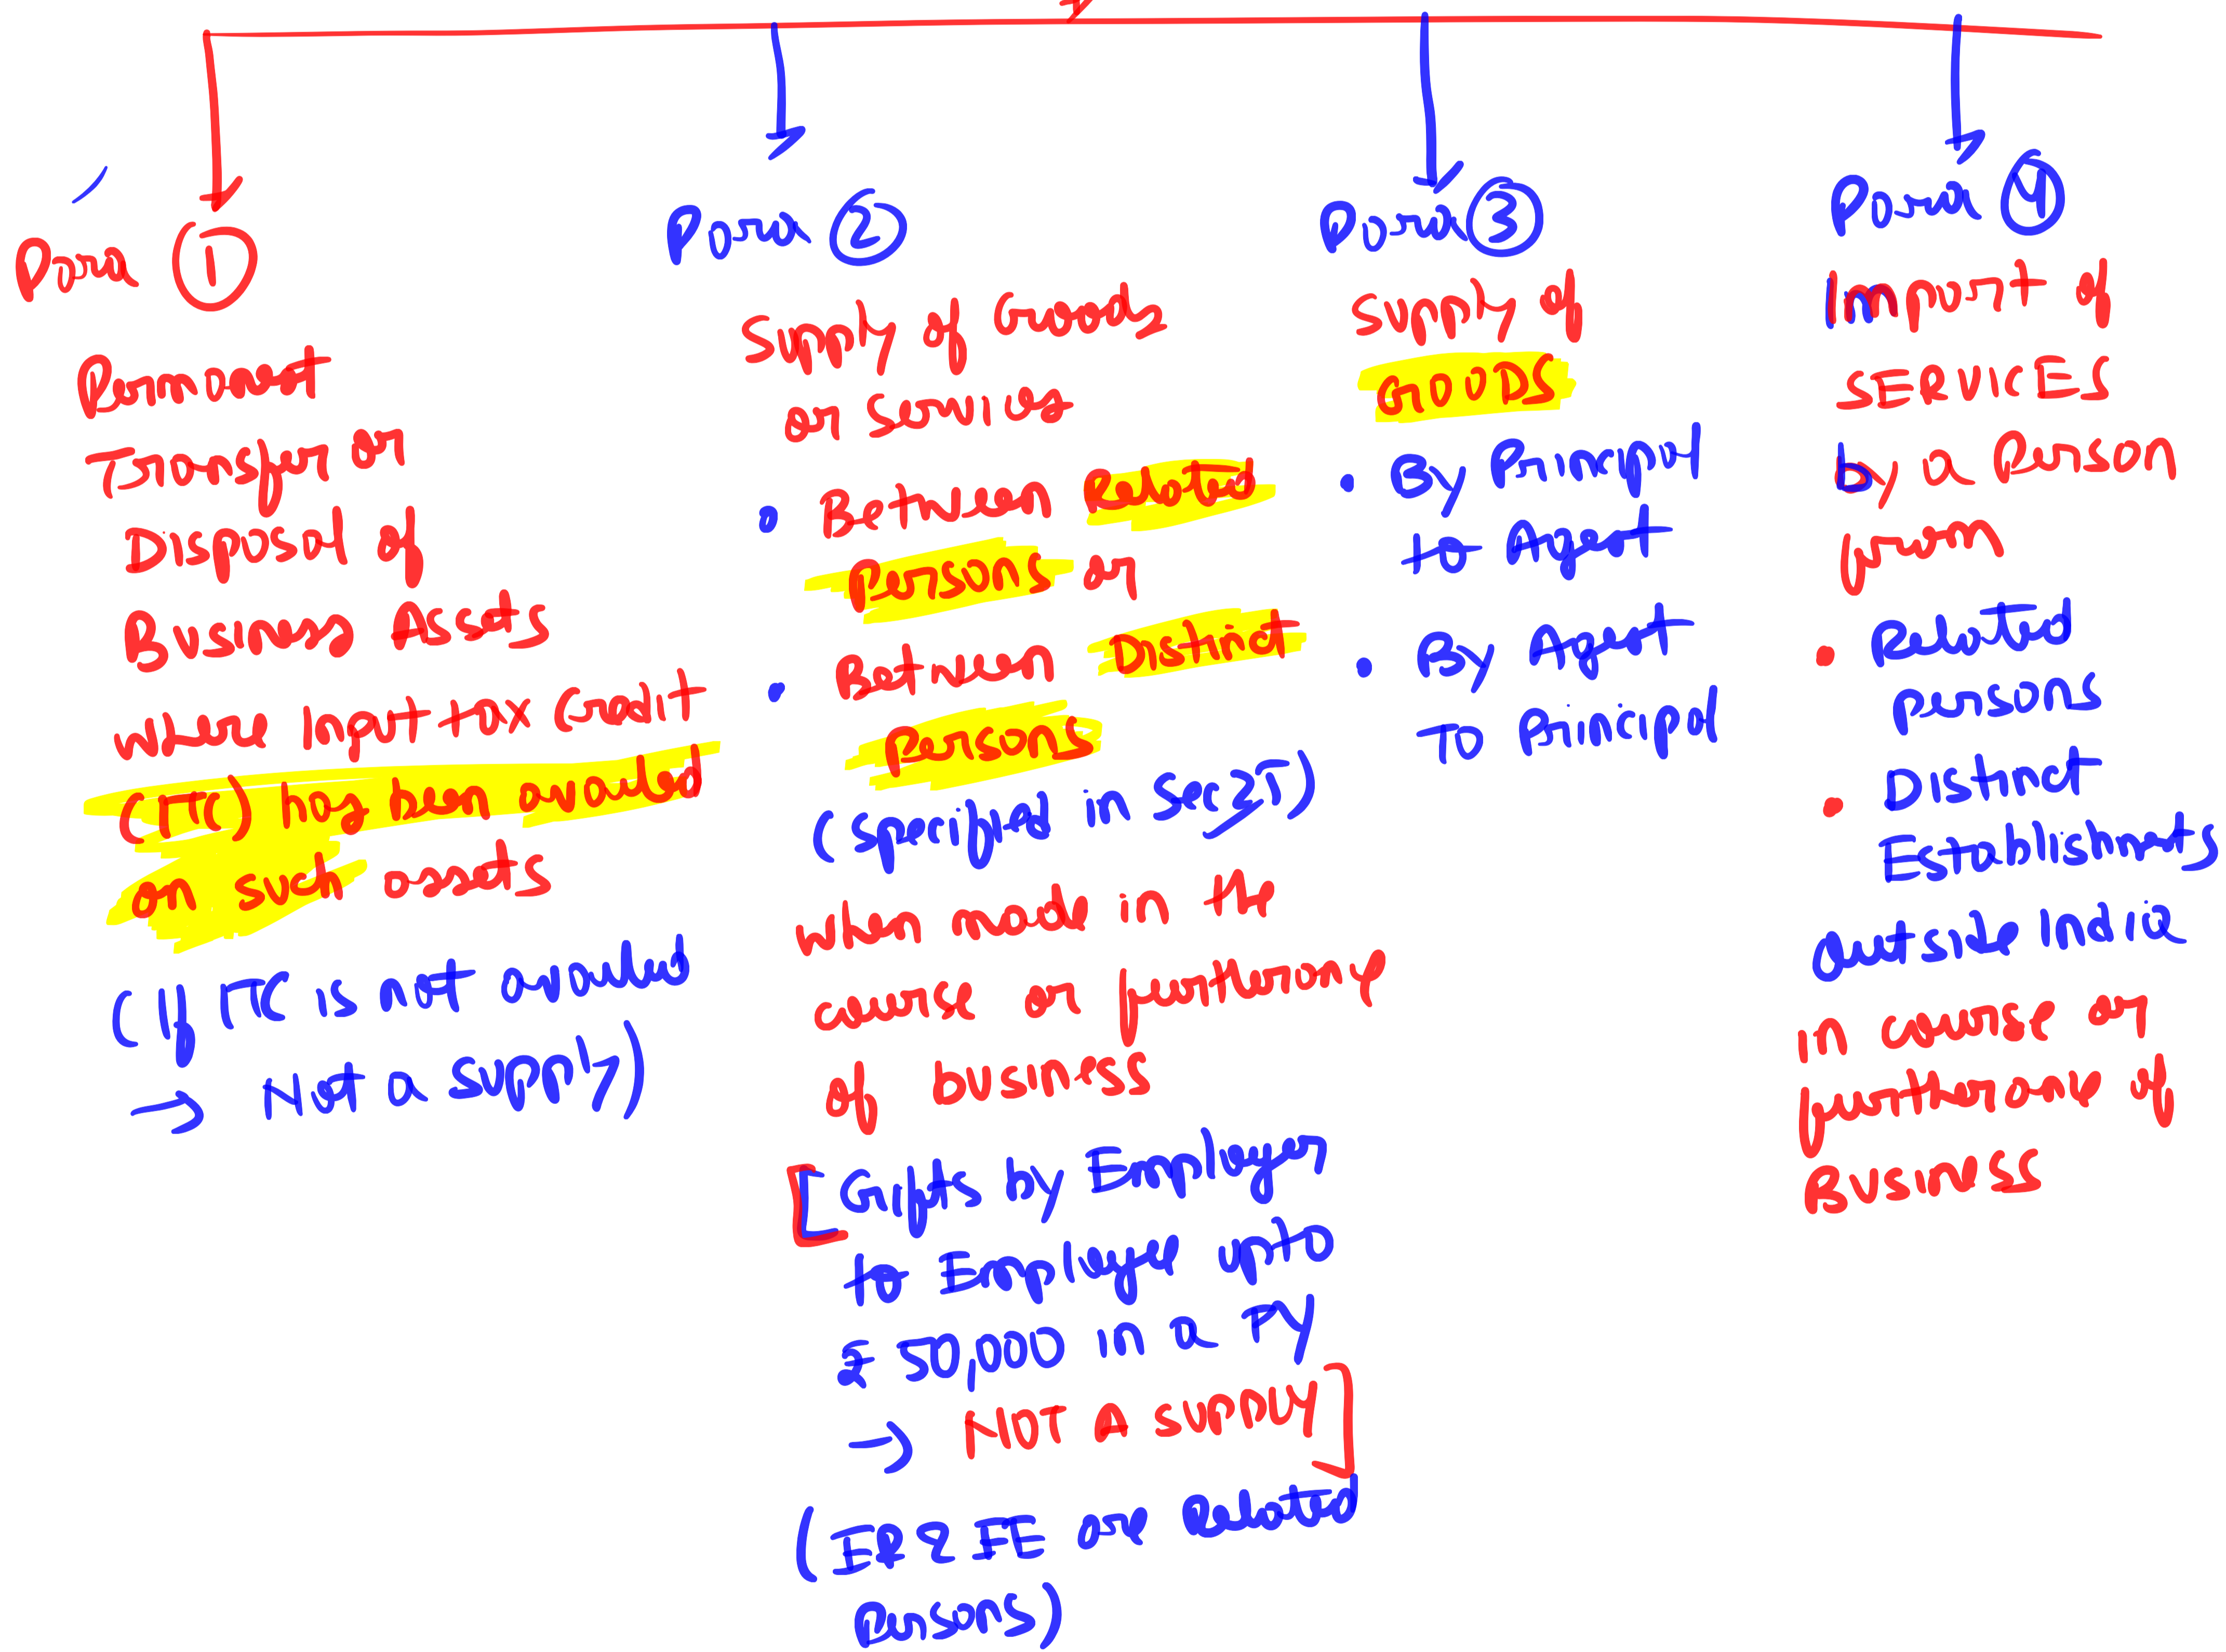 Para 1
Permanent
Transfer or
Disposal of
Business Assets
where Input tax Credit
(ITC) has been availed
on such assets
(If ITC is not availed
→ Not a supply)
Para 2
Supply of Goods
or Services
• Between Related
Persons or
• Between Distinct
Persons
(specified in Sec 25)
when made in the
course or furtherance
of business
[Gifts by Employer
to Employee upto
₹ 50,000 in a FY
→ NOT A SUPPLY]
(ER & EE are Related
Persons)
Para 3
Supply of
GOODS
• By Principal
to Agent
• By Agent
To Principal
Para 4
Import of
SERVICES
by a Person
from
• Related
Persons
• Distinct
Establishments
Outside India
in course or
furtherance of
Business